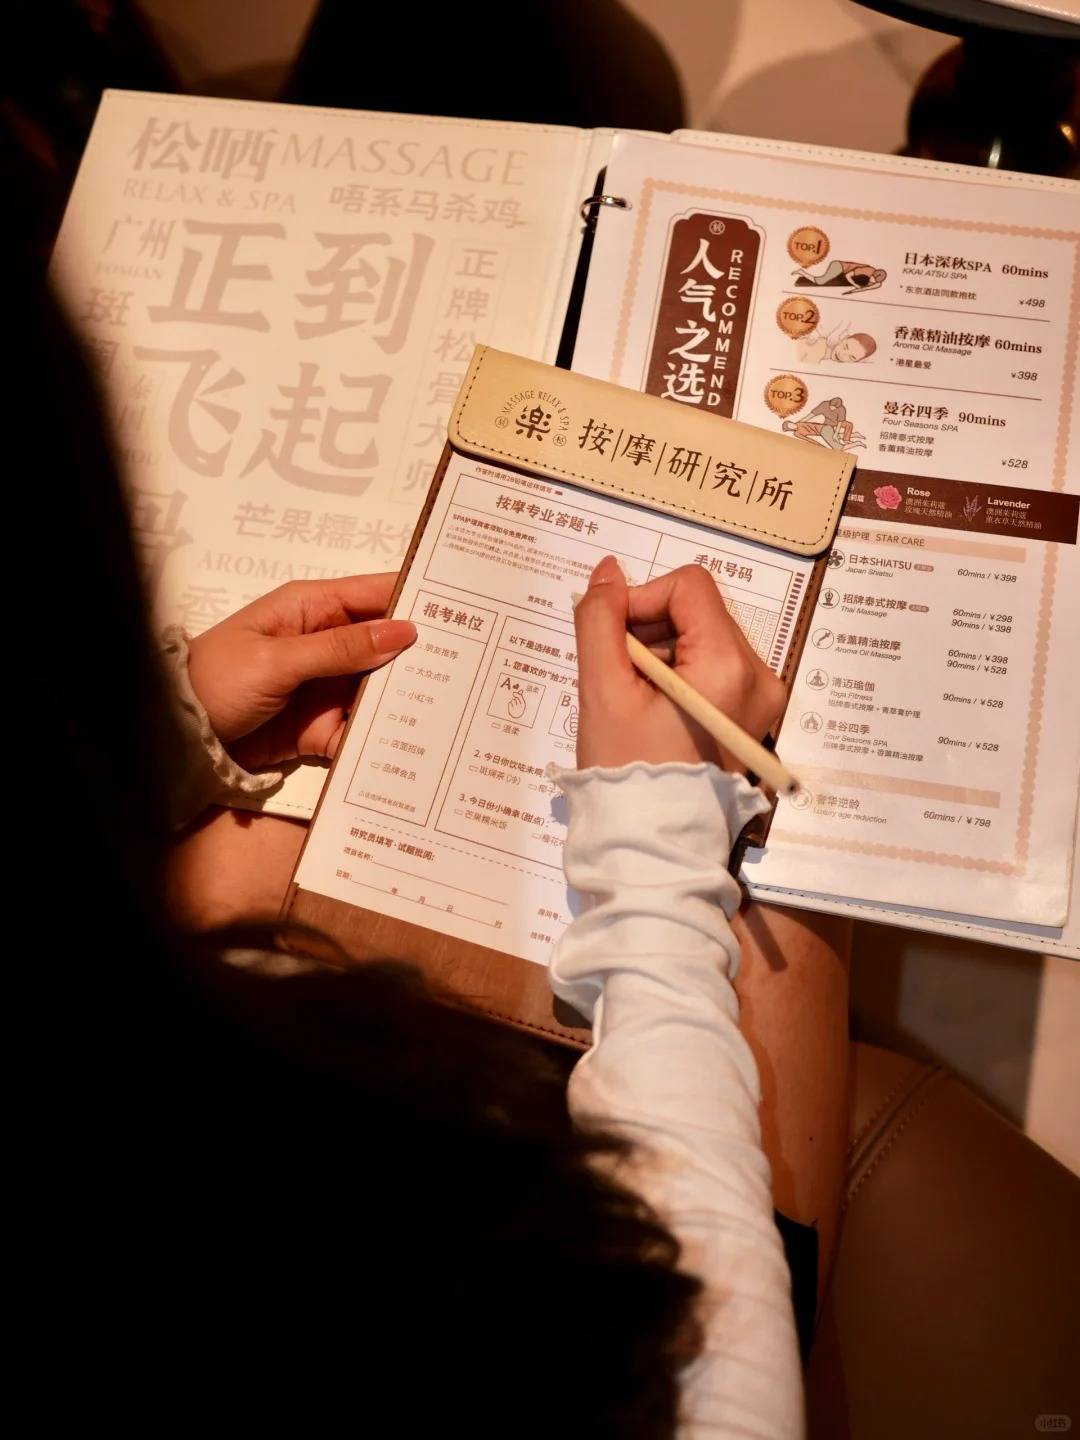 松晒 MASSAGE
RELAX & SPA 唔系马杀鸡
广州
正到
飞起
正
牌
松
骨
大
师
斑
芒果糯米饭
人气之选
RECOMMEND
TOP.1
日本深秋SPA 60mins
KKAI ATSU SPA
* 东京酒店同款抱枕
¥498
TOP.2
香薰精油按摩 60mins
Aroma Oil Massage
* 港星最爱
¥398
TOP.3
曼谷四季 90mins
Four Seasons SPA
招牌泰式按摩
香薰精油按摩
¥528
Rose
澳洲茱莉蔻
玫瑰天然精油
Lavender
澳洲茱莉蔻
薰衣草天然精油
星级护理 STAR CARE
日本SHIATSU
Japan Shiatsu
60mins / ¥398
招牌泰式按摩
Thai Massage
60mins / ¥298
90mins / ¥398
香薰精油按摩
Aroma Oil Massage
60mins / ¥398
90mins / ¥528
清迈瑜伽
Yoga Fitness
招牌泰式按摩 + 青草膏护理
90mins / ¥528
曼谷四季
Four Seasons SPA
招牌泰式按摩 + 香薰精油按摩
90mins / ¥528
奢华逆龄
Luxury age reduction
60mins / ¥798
MASSAGE RELAX & SPA
楽
按|摩|研|究|所
作答时请用2B铅笔这样填写
按摩专业答题卡
手机号码
SPA护理宾客须知与免责声明:
贵宾签名
报考单位
朋友推荐
大众点评
小红书
抖音
店面招牌
品牌会员
以下是选择题,请
1. 您喜欢的“给力”程
A 温柔
B
温柔
2. 今日你饮咗未啊
斑斓茶(冷)
椰子
3. 今日份小确幸(甜点):
芒果糯米饭
樱花
研究员填写·试题批阅:
项目名称:
日期: 年 月 日 时
房间号:
技师号:
小红书